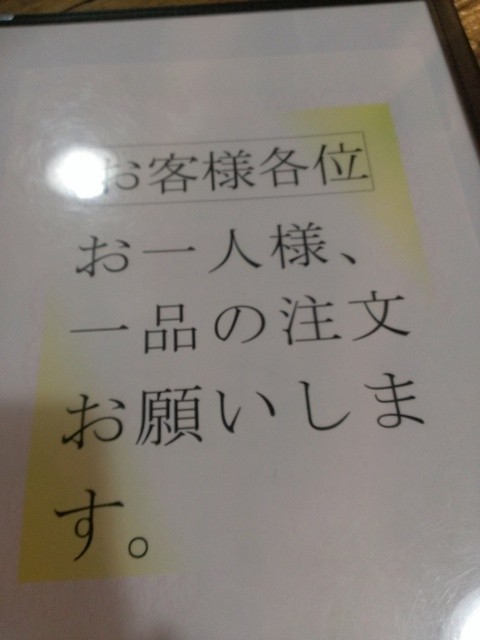 お客様各位
お一人様、
一品の注文
お願いしま
す。